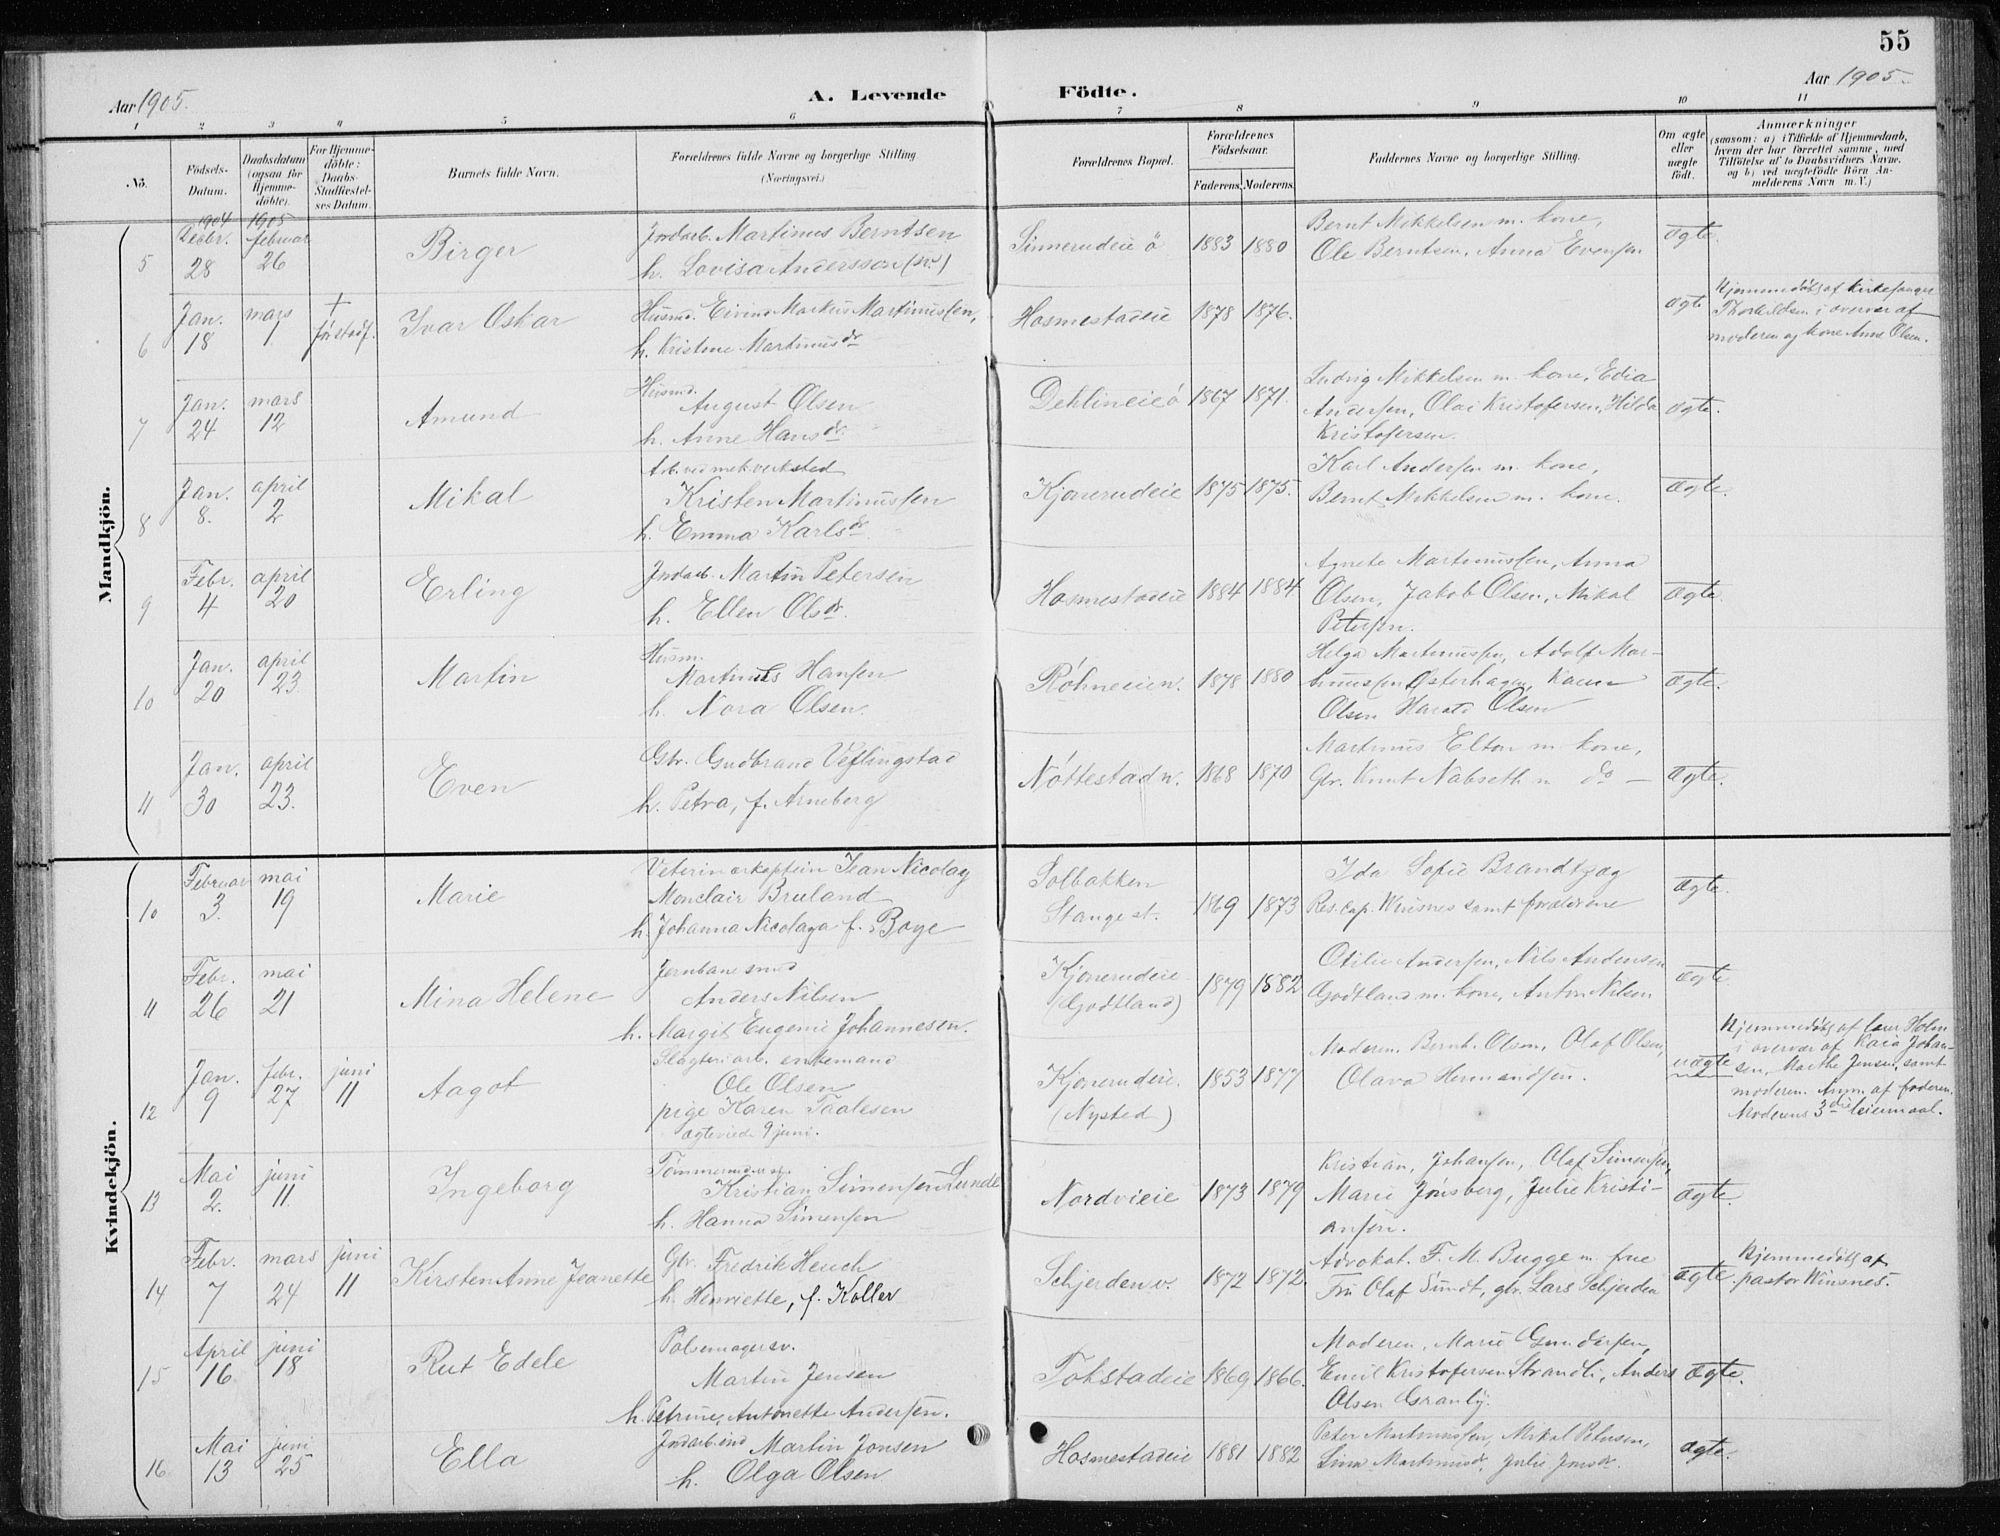 55
Aar 1905.
A. Levende Födte.
Aar 1905.
1 2 3 4 5 6 7 8 9 10 11
No.
Födsels-Datum.
Daabsdatum (ogsaa for Hjemmedöbte).
For Hjemmedöbte: Daabs-Stadfæstelses Datum.
Barnets fulde Navn.
Forældrenes fulde Navne og borgerlige Stilling (Næringsvei.)
Forældrenes Bopæl.
Forældrenes Födselsaar.
Faderens. Moderens.
Faddernes Navne og borgerlige Stilling.
Om ægte eller uægte födt.
Anmærkninger
(saasom: a) i Tilfælde af Hjemmedaab, hvem der har forrettet samme, med Tilföielse af to Daabsvidners Navne. og b) ved uægtefödte Börn Anmelderens Navn m. V.)
Mandkjön.
1904 1905
5 Decbr. 28 februar 26 Birger
Indarb. Martinus Berntsen
h. Lovisa Andersson (sv.)
Sinnerudeie ö 1883 1880
Bernt Mikkelsen m. kone,
Ole Berntsen, Anna Evensen
ægte.
6 Jan. 18 mars 1 + Ivar Oskar
Husmd. Eivind Markus Martinussen,
h. Kristine Martinusdr
Hosmestadeie 1878 1876.
ægte
Hjemmedöbt af kirkesanger
Thorkildsen i overvær af
moderen og kone Anne Olsen.
7 Jan. 24 mars 12 Amund
Husmd.
August Olsen
h. Anne Hansdr.
Dehlineie ö 1867 1871.
Ludvig Mikkelsen m. kone, Edia
Andersen, Olai Kristofersen, Hilda
Kristofersen.
ægte.
8 Jan. 8. april 2 Mikal
Arb. ved mek verksted
Kristen Martinussen
h. Emma Karlsdr.
Kjonerudeie 1875 1875.
Karl Andersen m. kone,
Bernt Mikkelsen m. kone.
ægte.
9 Febr. 4 april 20 Erling
Indarb. Martin Petersen
h. Ellen Olsdr.
Hosmestadeie 1884 1884
Agnete Martinussen, Anna
Olsen, Jakob Olsen, Mikal
Petersen.
ægte.
10 Jan. 20 april 23 Martin
Husm.
Martinus Hansen
h. Nora Olsen.
Röhneeie n. 1878 1880
Helga Martinussen, Adolf Mar-
tinussen Österhagen,
Olsen Harald Olsen
ægte.
11 Jan. 30 april 23. Even
Gbr. Gudbrand Veflingstad
h. Petra, f. Arneberg
Nöttestad n. 1868 1870
Martinus Elton m. kone,
Gbr. Knut Nabseth m do —
ægte.
Kvindekjön.
10 Februar 3. mai 19 Marie
Veterinærkaptein Jean Nicolay
Monclair Bruland
h. Johanna Nicolaya f. Boye
Solbakken
Stange st. 1869 1873
Ida Sofie Brandtzæg
Res. cap. Winsnes samt forældrene
ægte.
11 Febr. 26 mai 21 Mina Helene
Jernbanesmed
Anders Nilsen
h. Margit Eugenie Johannesen.
Kjonerudeie
(Godtland) 1879 1882
Otilie Andersen, Nils Andersen
Godtland m. kone, Anton Nilsen
ægte.
12 Jan. 9 febr. 27 juni 11 Aagot
Slagteriarb. enkemand
Ole Olsen
pige Karen Paalesen
ægteviede 9 juni.
Kjonerudeie.
(Nysted) 1853 1877
Moderen, Bernt. Olsen, Olaf Olsen,
Olava Hermandsen.
uægte
Hjemmedöbt af Holm
i overvær af Kaia Johan-
sen, Marthe Jensen, samt
moderen. Anm. af faderen.
Moderens 3die leiermaal.
13 Mai 2. juni 11. Ingeborg
Kristian Simensen Lunde
h. Hanna Simensen
Nordvieie 1873 1879
Kristian Johansen, Olaf Simensen,
Marie Jönsberg, Julie Kristi-
ansen.
ægte.
14 Febr. 7 mars 24 juni 11 Kirsten Anne Jeanette
Gbr. Fredrik Heuch
h. Henriette, f. Koller
Schjerden v. 1872 1872.
Advokat. F. M. Bugge m. frue
Fru Olaf Sundt, gbr. Lars Schjerden
ægte.
Hjemmedöbt af
pastor Winsnes.
15 April 16 juni 18 Rut Edele
Pölsemagersv.
Martin Jensen
h. Petrine Antonette Andersen.
Tokstadeie 1869 1866.
Moderen, Marie Gundersen,
Emil Kristofersen Strandli, Anders
Olsen Granly.
ægte.
16 Mai 13 juni 25 Ella
Martin Jonsen
h. Olga Olsen
Hosmestadeie 1881 1882
Peter Martinussen, Mikal Petersen,
Lina Martinusdr, Julie Jonsdr.
ægte.